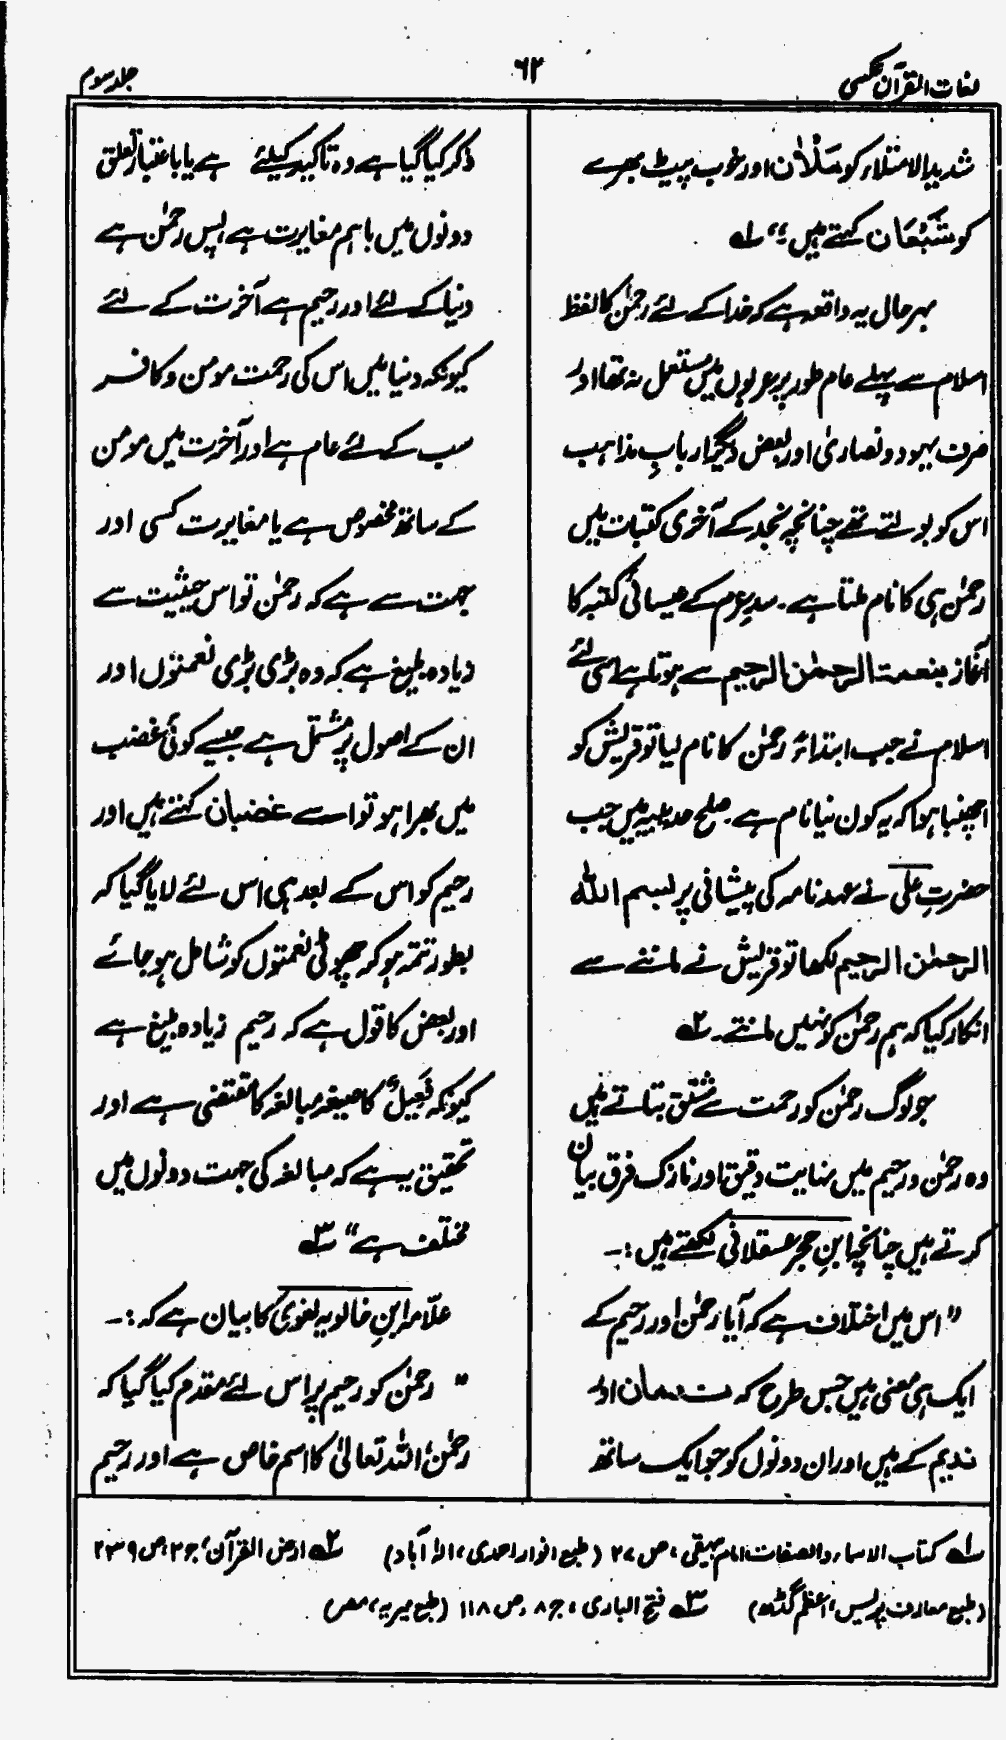 لغات القرآن عکسی
۶۲
جلد سوم
شدید الامتلاء کو مَلْاٰن اور خوب پیٹ بھرے
کو شَبْعَان کہتے ہیں ؛؛ لہ
بہر حال یہ واقعہ ہے کہ خدا کے لئے رحمٰن کا لفظ
اسلام سے پہلے عام طور پر عربوں میں مستعمل نہ تھا اور
صرف یہود و نصاریٰ اور بعض دیگر ارباب مذاہب
اس کو بولتے تھے چنانچہ نجد کے آخری کتبات میں
رحمٰن ہی کا نام ملتا ہے۔ سدِ عرم کے عیسائی کتبہ کا
آغاز بنعمت الرحمٰن الرحیم سے ہوتا ہے اسی لئے
اسلام نے جب ابتداءً رحمٰن کا نام لیا تو قریش کو
اچنبا ہوا کہ یہ کون نیا نام ہے۔ صلح حدیبیہ میں جب
حضرتِ علی نے عہد نامہ کی پیشانی پر بسم اللہ
الرحمٰن الرحیم لکھا تو قریش نے ماننے سے
انکار کیا کہ ہم رحمٰن کو نہیں مانتے۔ ۲ہ
جو لوگ رحمٰن کو رحمت سے مشتق بتاتے ہیں
وہ رحمٰن و رحیم میں نہایت دقیق اور نازک فرق بیان
کرتے ہیں چنانچہ ابنِ حجر عسقلانی لکھتے ہیں :۔
" اس میں اختلاف ہے کہ آیا رحمٰن اور رحیم کے
ایک ہی معنی ہیں جس طرح کہ ندمان اور
ندیم کے ہیں اور ان دونوں کو جو ایک ساتھ
ذکر کیا گیا ہے وہ تاکید کیلئے ہے یا باعتبار تعلق
دونوں میں باہم مغایرت ہے پس رحمٰن ہے
دنیا کے لئے اور رحیم ہے آخرت کے لئے
کیونکہ دنیا میں اس کی رحمت مومن و کافر
سب کے لئے عام ہے اور آخرت میں مومن
کے ساتھ مخصوص ہے یا مغایرت کسی اور
جہت سے ہے کہ رحمٰن تو اس حیثیت سے
زیادہ بلیغ ہے کہ وہ بڑی بڑی نعمتوں اور
ان کے اصول پر مشتمل ہے جیسے کوئی غضب
میں بھرا ہو تو اسے غضبان کہتے ہیں اور
رحیم کو اس کے بعد ہی اس لئے لایا گیا کہ
بطور تتمہ ہو کر چھوٹی نعمتوں کو شامل ہو جائے
اور بعض کا قول ہے کہ رحیم زیادہ بلیغ ہے
کیونکہ فَعِیلٌ کا صیغہ مبالغہ کا مقتضی ہے اور
تحقیق یہ ہے کہ مبالغہ کی جہت دونوں میں
مختلف ہے" ۳ہ
علامہ ابنِ خالویہ لغوی کا بیان ہے کہ :۔
" رحمٰن کو رحیم پر اس لئے مقدم کیا گیا کہ
رحمٰن اللہ تعالیٰ کا اسم خاص ہے اور رحیم
لہ کتاب الاسماء والصفات امام بیہقی، ص ۲۷ (طبع انوار احمدی، الہ آباد) ۲ہ ارض القرآن، ج ۲، ص ۲۳۹
(طبع معارف پریس، اعظم گڈھ) ۳ہ فتح الباری، ج ۸، ص ۱۱۸ (طبع میریہ، مصر)